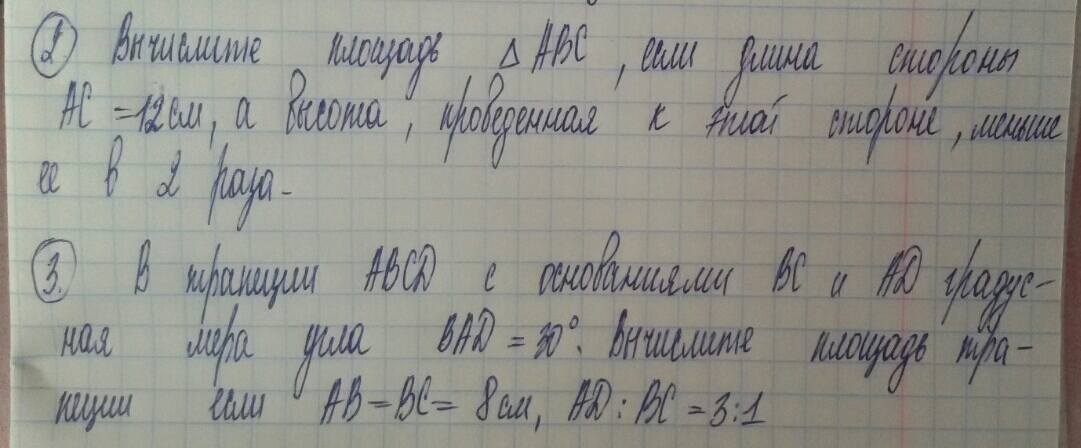 2 Вычислите площадь △ ABC, если длина стороны
AC = 12 см, а высота, проведенная к этой стороне, меньше
ее в 2 раза.
3. В трапеции ABCD с основаниями BC и AD градус-
ная мера угла BAD = 30°. Вычислите площадь тра-
пеции если AB = BC = 8 см, AD : BC = 3:1